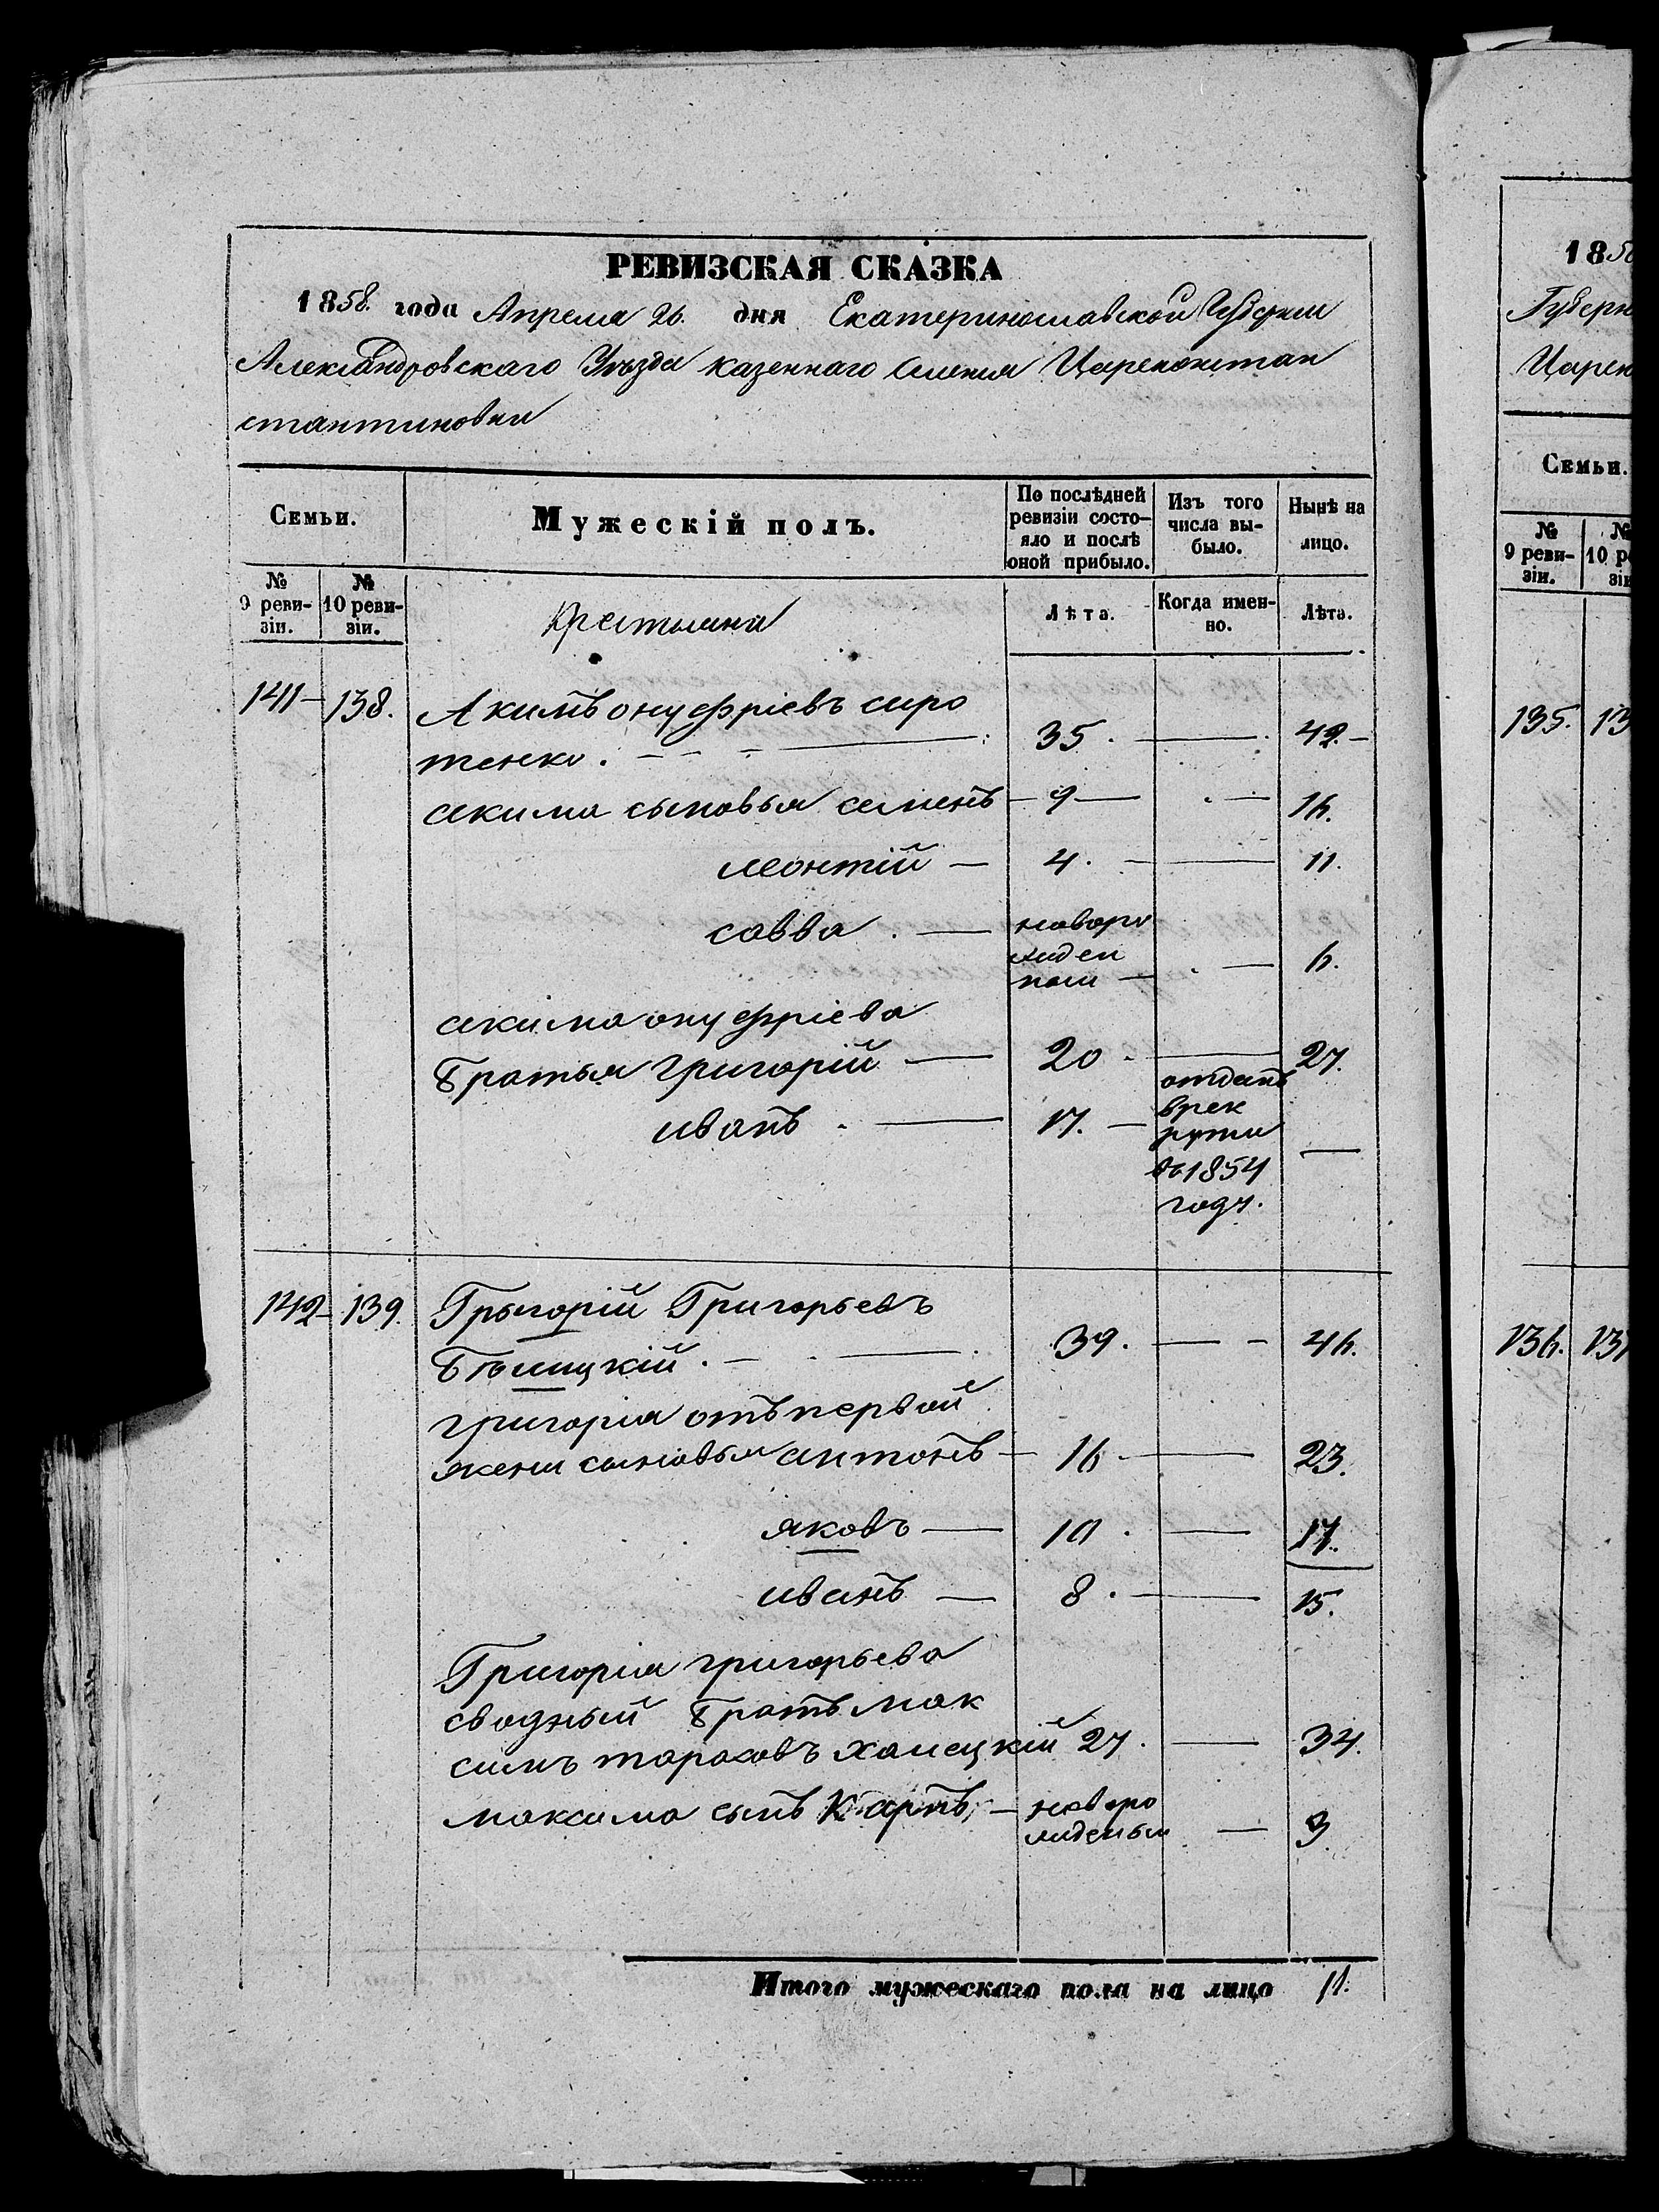 РЕВИЗСКАЯ СКАЗКА
1858. года Апреля 26. дня Екатеринославской Губернии
Александровскаго Уъзда казеннаго Селения Цареконстан
стантиновки
Семьи.
Мужескій полъ.
По послѣдней ревизіи состо-яло и послѣ оной прибыло.
Изъ того числа вы-было.
Нынѣ на лицо.
№ 9 реви-зіи.
№ 10 реви-зіи.
Крестьяни
Лѣта.
Когда имен-но.
Лѣта.
141 – 138. Акимъ онуфріевъ сиро
тенко. 35. 42.
акима сыновья семенъ 9 16.
леонтій 4. 11.
савва. новоро
жден
ной 6.
акима онуфріева
братья григорій 20 27.
иванъ. 17. отданъ
врек
рути
въ 1854
году.
142 – 139. Грыгорій Григорьевъ
Бѣлицкій. 39. 46.
григорія отъ первой
жени сыновья антонъ 16 23.
яковъ 10. 17.
иванъ 8. 15.
Григорія григорьева
сводный братъ мак
симъ тарасовъ халецкій 27. 34.
максима сынъ Карпъ новоро
жденый 3.
Итого мужескаго пола на лицо 11.
1858
Губерн
Царек
Семьи.
№ 9 реви-зіи.
№ 10 р
зіи
135. 13
136. 13